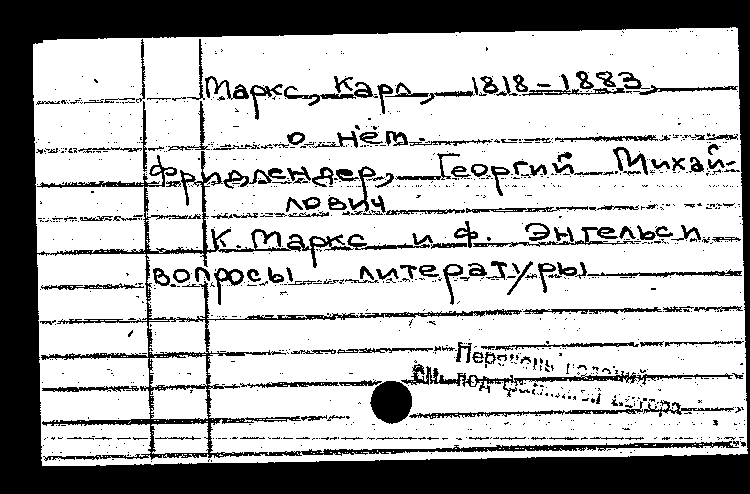 Маркс, Карл, 1818-1883,
о нём.
Фридлендер, Георгий Михай-
лович
К. Маркс и Ф. Энгельс и
вопросы литературы
Перечень изданий
см. под фамилией автора